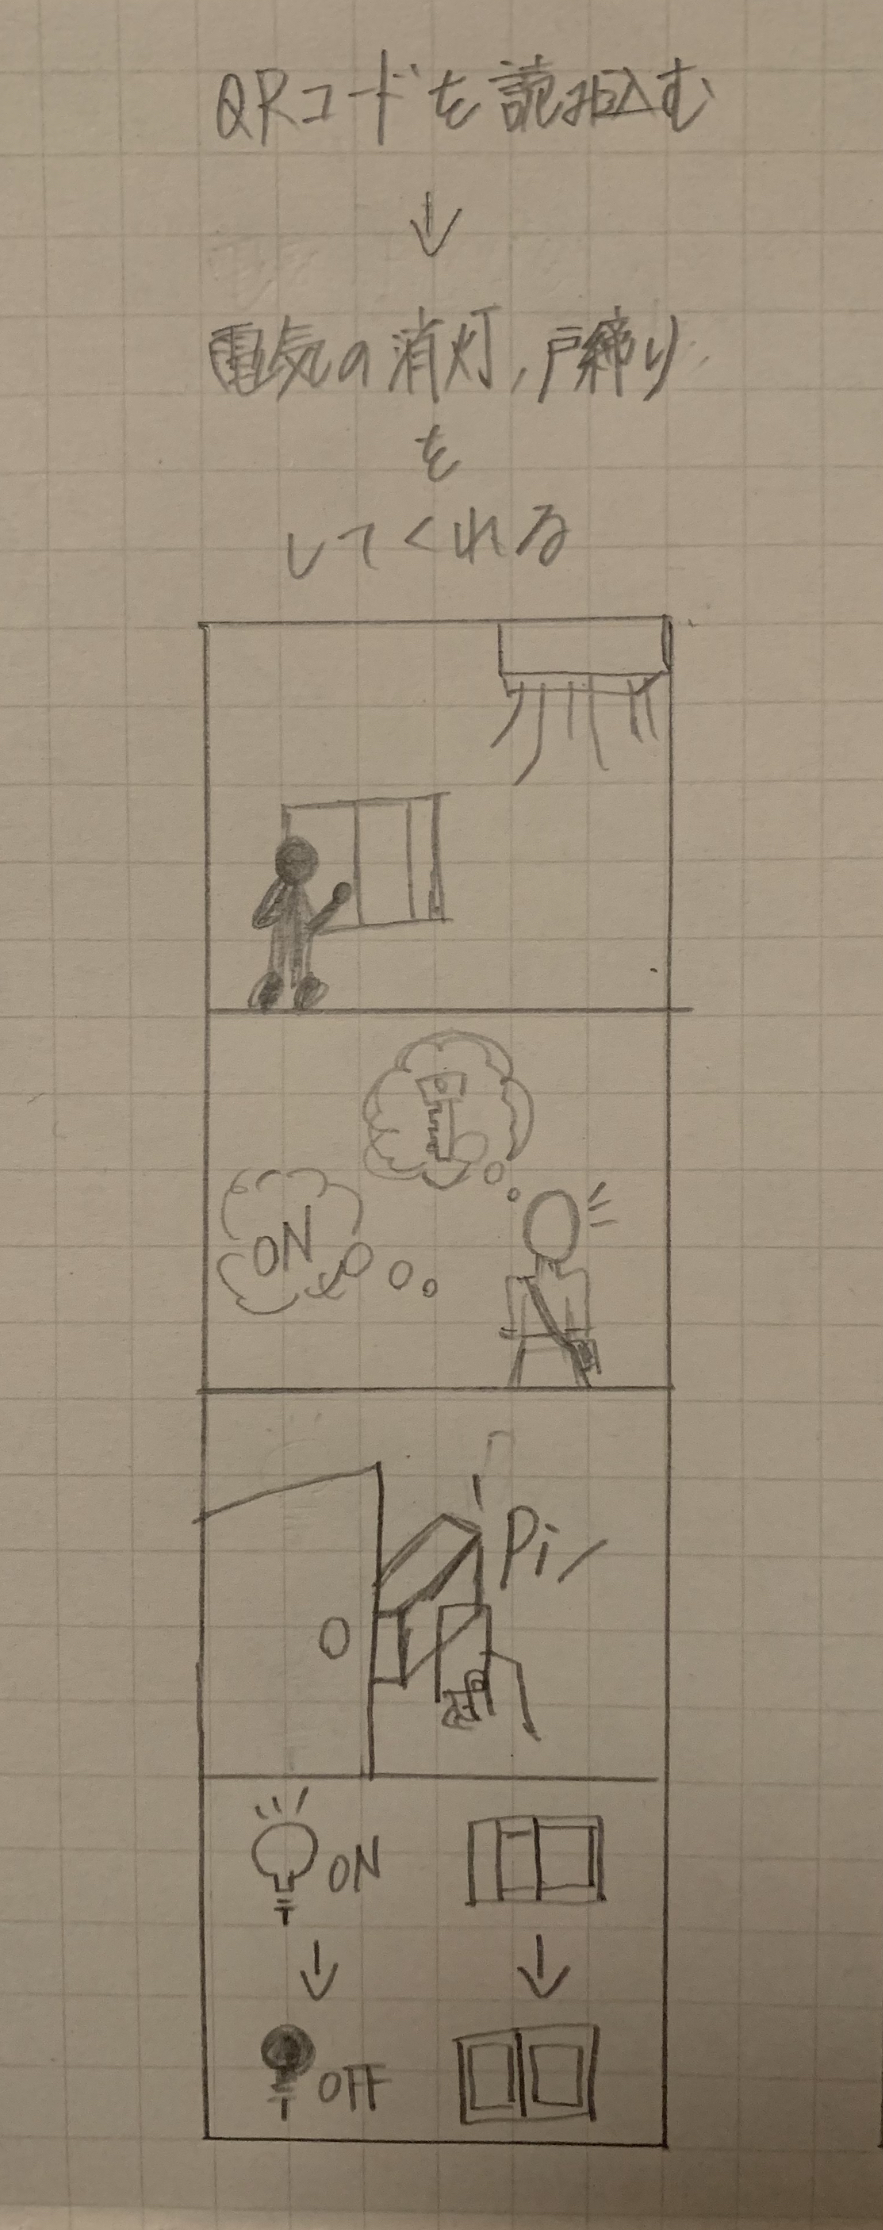 QRコードを読み込む
↓
電気の消灯,戸締り
を
してくれる
ON
Pi
ON
↓ ↓
OFF